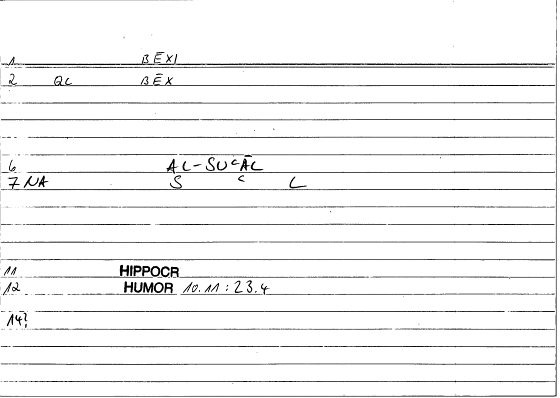 1 BĒXI
2 QC BĒX
6 AL-SUᶜĀL
7 NA S ᶜ L
11 HIPPOCR
12 HUMOR 10.11:23.4
14?